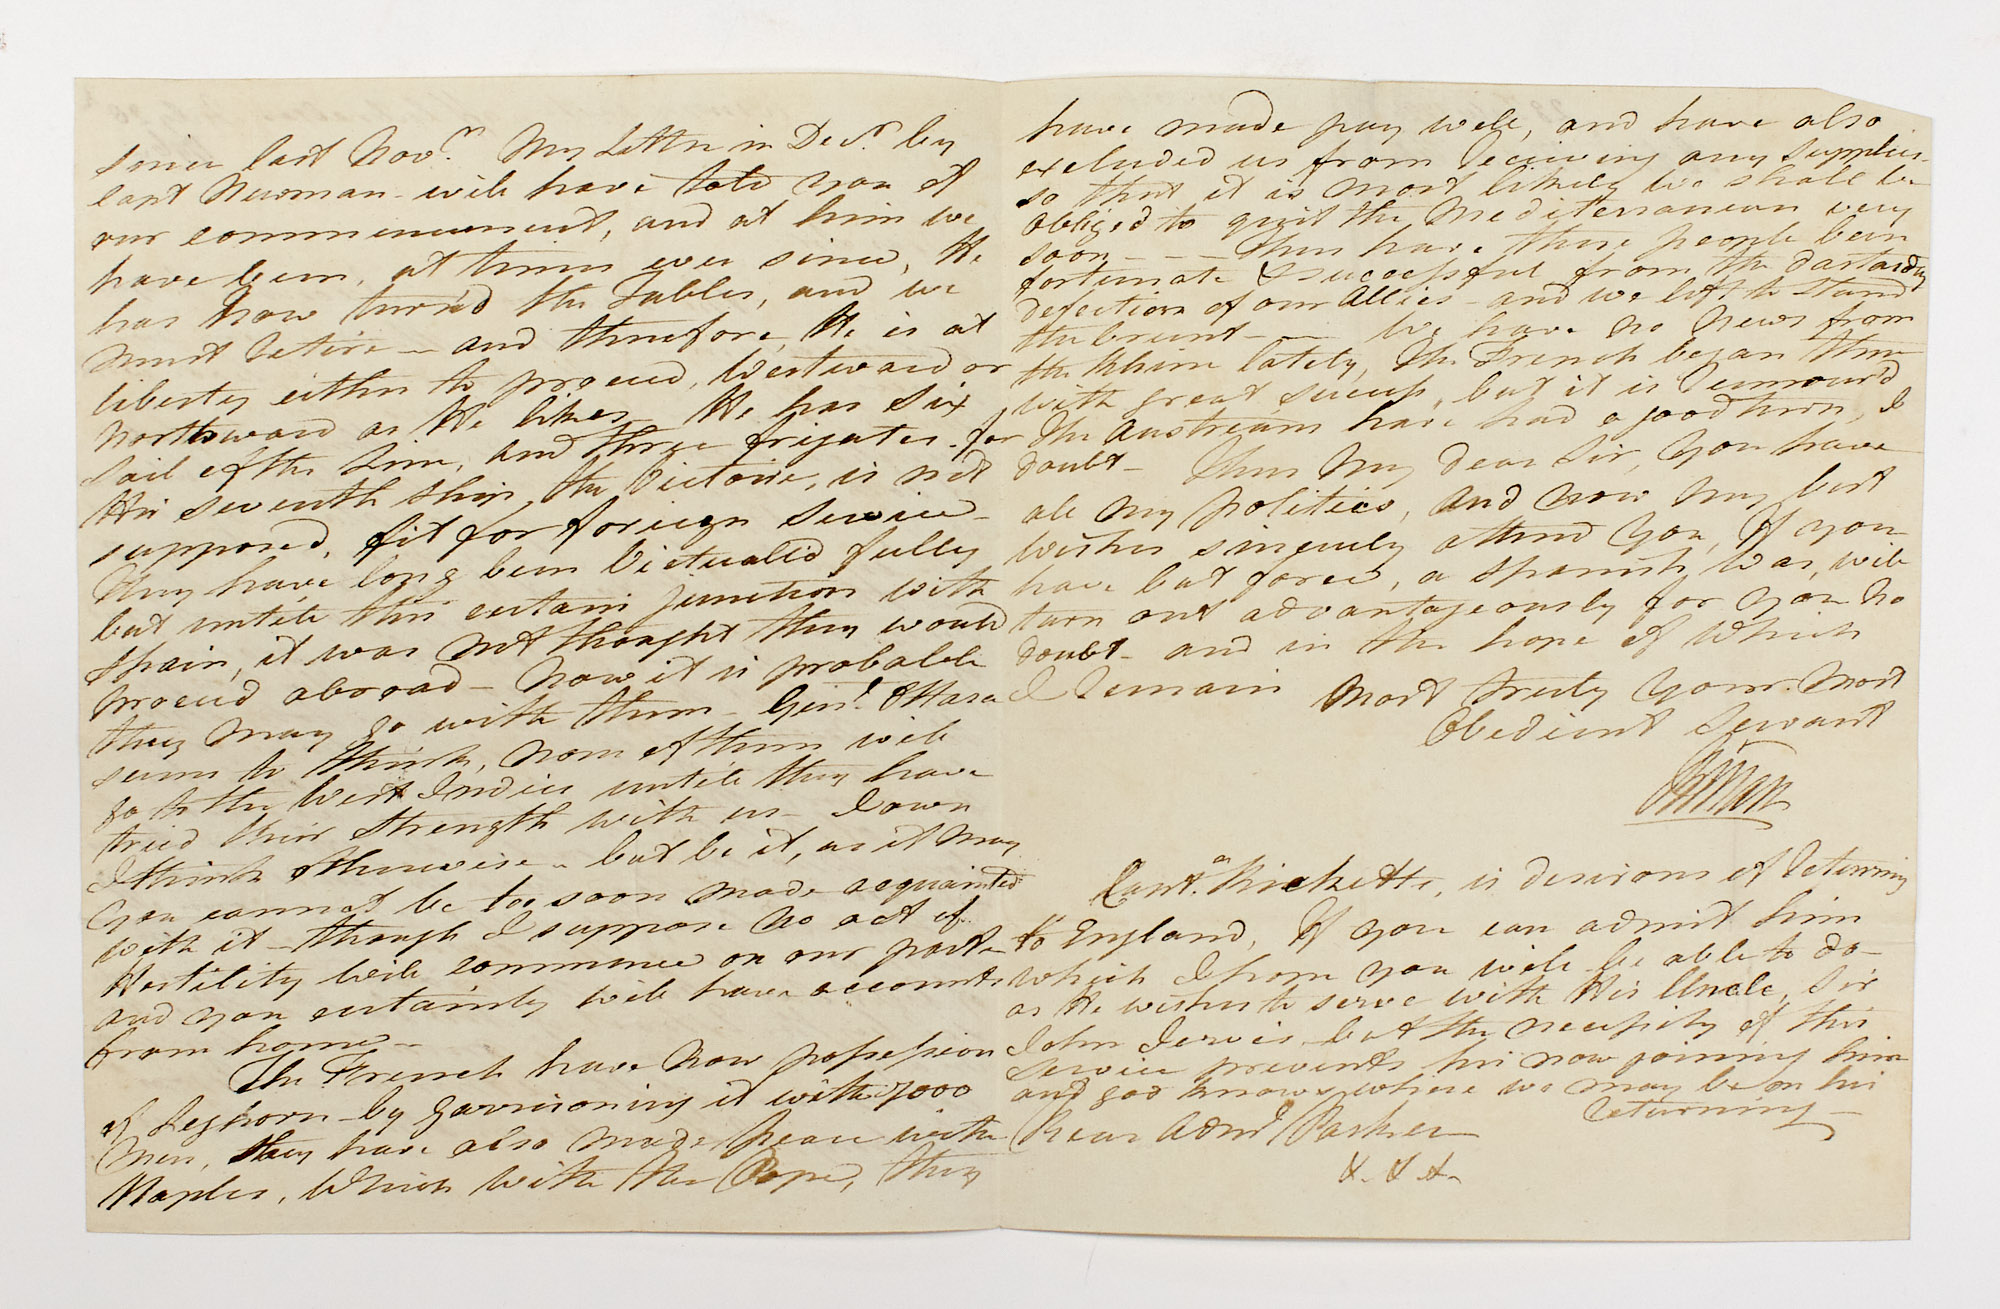 since last Novr. My Letter in Decr. by
Capt Newman will have told you of
our commencement, and at him we
have been, at times ever since, He
has now turn'd the Tables, and we
must retire — and therefore, He is at
liberty either to proceed, Westward or
Northward as He likes — He has Six
Sail of the Line, and three frigates. for
His seventh Ship, the Victoire, is not
supposed, fit for foreign Service —
They have long been Victualed fully
but untill this certain junction with
Spain, it was not thought they would
proceed abroad — Now it is probable
they may go with them — Genl. OHara
seems to think, none of them will
go to the West Indies untill they have
tried their Strength with us — I own
I think otherwise — but be it, as it may
You cannot be too soon made acquainted
with it — though I suppose no act of
Hostility will commence on our part —
and you certainly will have accounts
from home —
The French have now possession
of Leghorn — by garrisoning it with 7000
Men, they have also made peace with
Naples, which with the Pope, they
have made pay well, and have also
excluded us from receiving any supplies
so that it is most likely we shall be
obliged to quit the Mediterranean very
soon — — — Thus have these people been
fortunate & successful from the dastardly
defection of our Allies — and we left to stand
the brunt — — We have no News from
the Rhine lately, The French began there
with great success, but it is rumour'd
the Austrians have had a good turn, I
doubt — Thus My dear Sir, You have
all My politics, and now My best
wishes sincerely attend You, If you
have but force, a Spanish War, will
turn out advantageously for you no
doubt — and in the hope of which
I remain Most truly Your Most
Obedient Servant
Man
Capt. Ricketts, is desirous of returning
to England, If you can admit him
which I hope you will be able to do —
as He wishes to serve with His Uncle, Sir
John Jervis — but the necessity of this
Service prevents his now joining him
and god knows where we may be on his
returning —
Rear Adml Parker
&. & &.